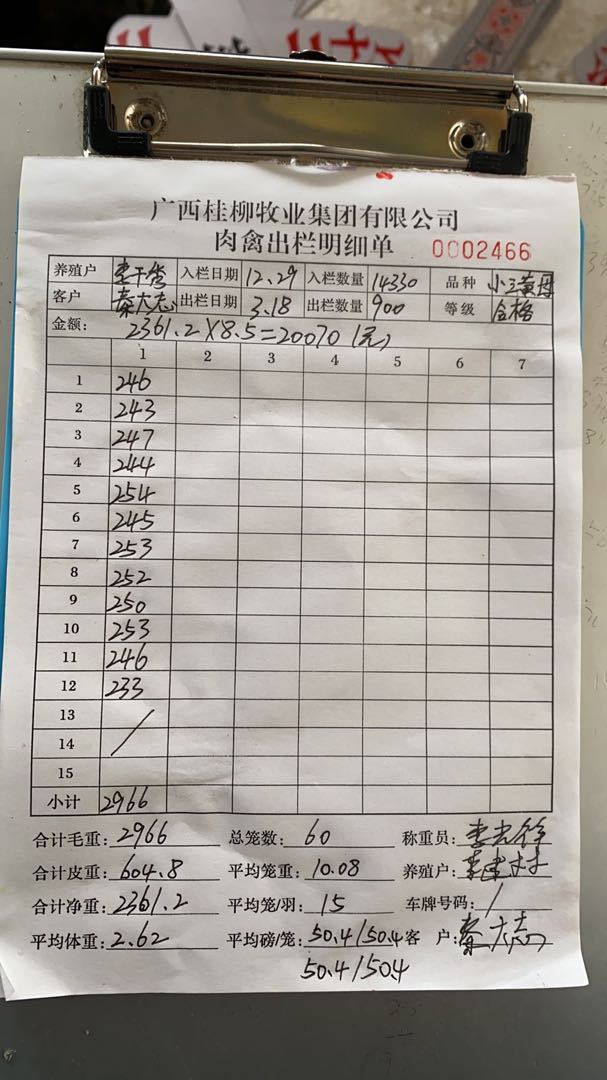 广西桂柳牧业集团有限公司
肉禽出栏明细单 0002466
养殖户 入栏日期 12.29 入栏数量 14330 品种 小三黄母
客户 秦大志 出栏日期 3.18 出栏数量 900 等级 合格
金额: 2361.2×8.5=20070(元)
1 2 3 4 5 6 7
1 246
2 243
3 247
4 244
5 254
6 245
7 253
8 252
9 250
10 253
11 246
12 233
13
14
15
小计 2966
合计毛重: 2966 总笼数: 60 称重员:
合计皮重: 604.8 平均笼重: 10.08 养殖户:
合计净重: 2361.2 平均笼/羽: 15 车牌号码: /
平均体重: 2.62 平均磅/笼: 50.4/50.4 客 户: 秦大志
50.4/50.4